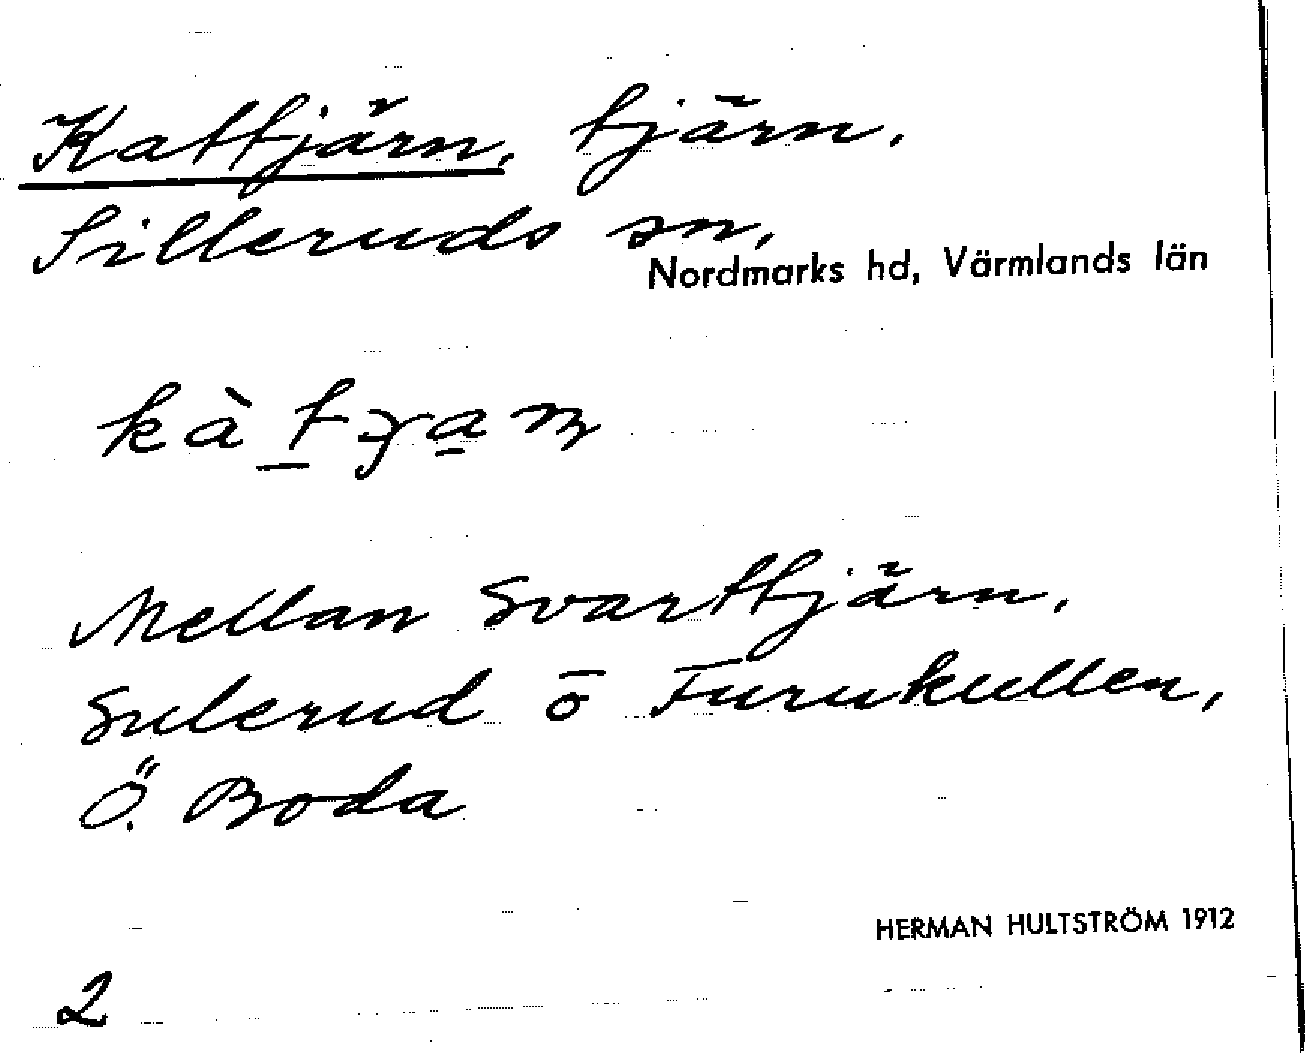 Kattjärn, tjärn.
Silleruds sn,
Nordmarks hd, Värmlands län
Mellan Svarttjärn,
Sulerud o Furukullen,
Ö. Boda
HERMAN HULTSTRÖM 1912
2